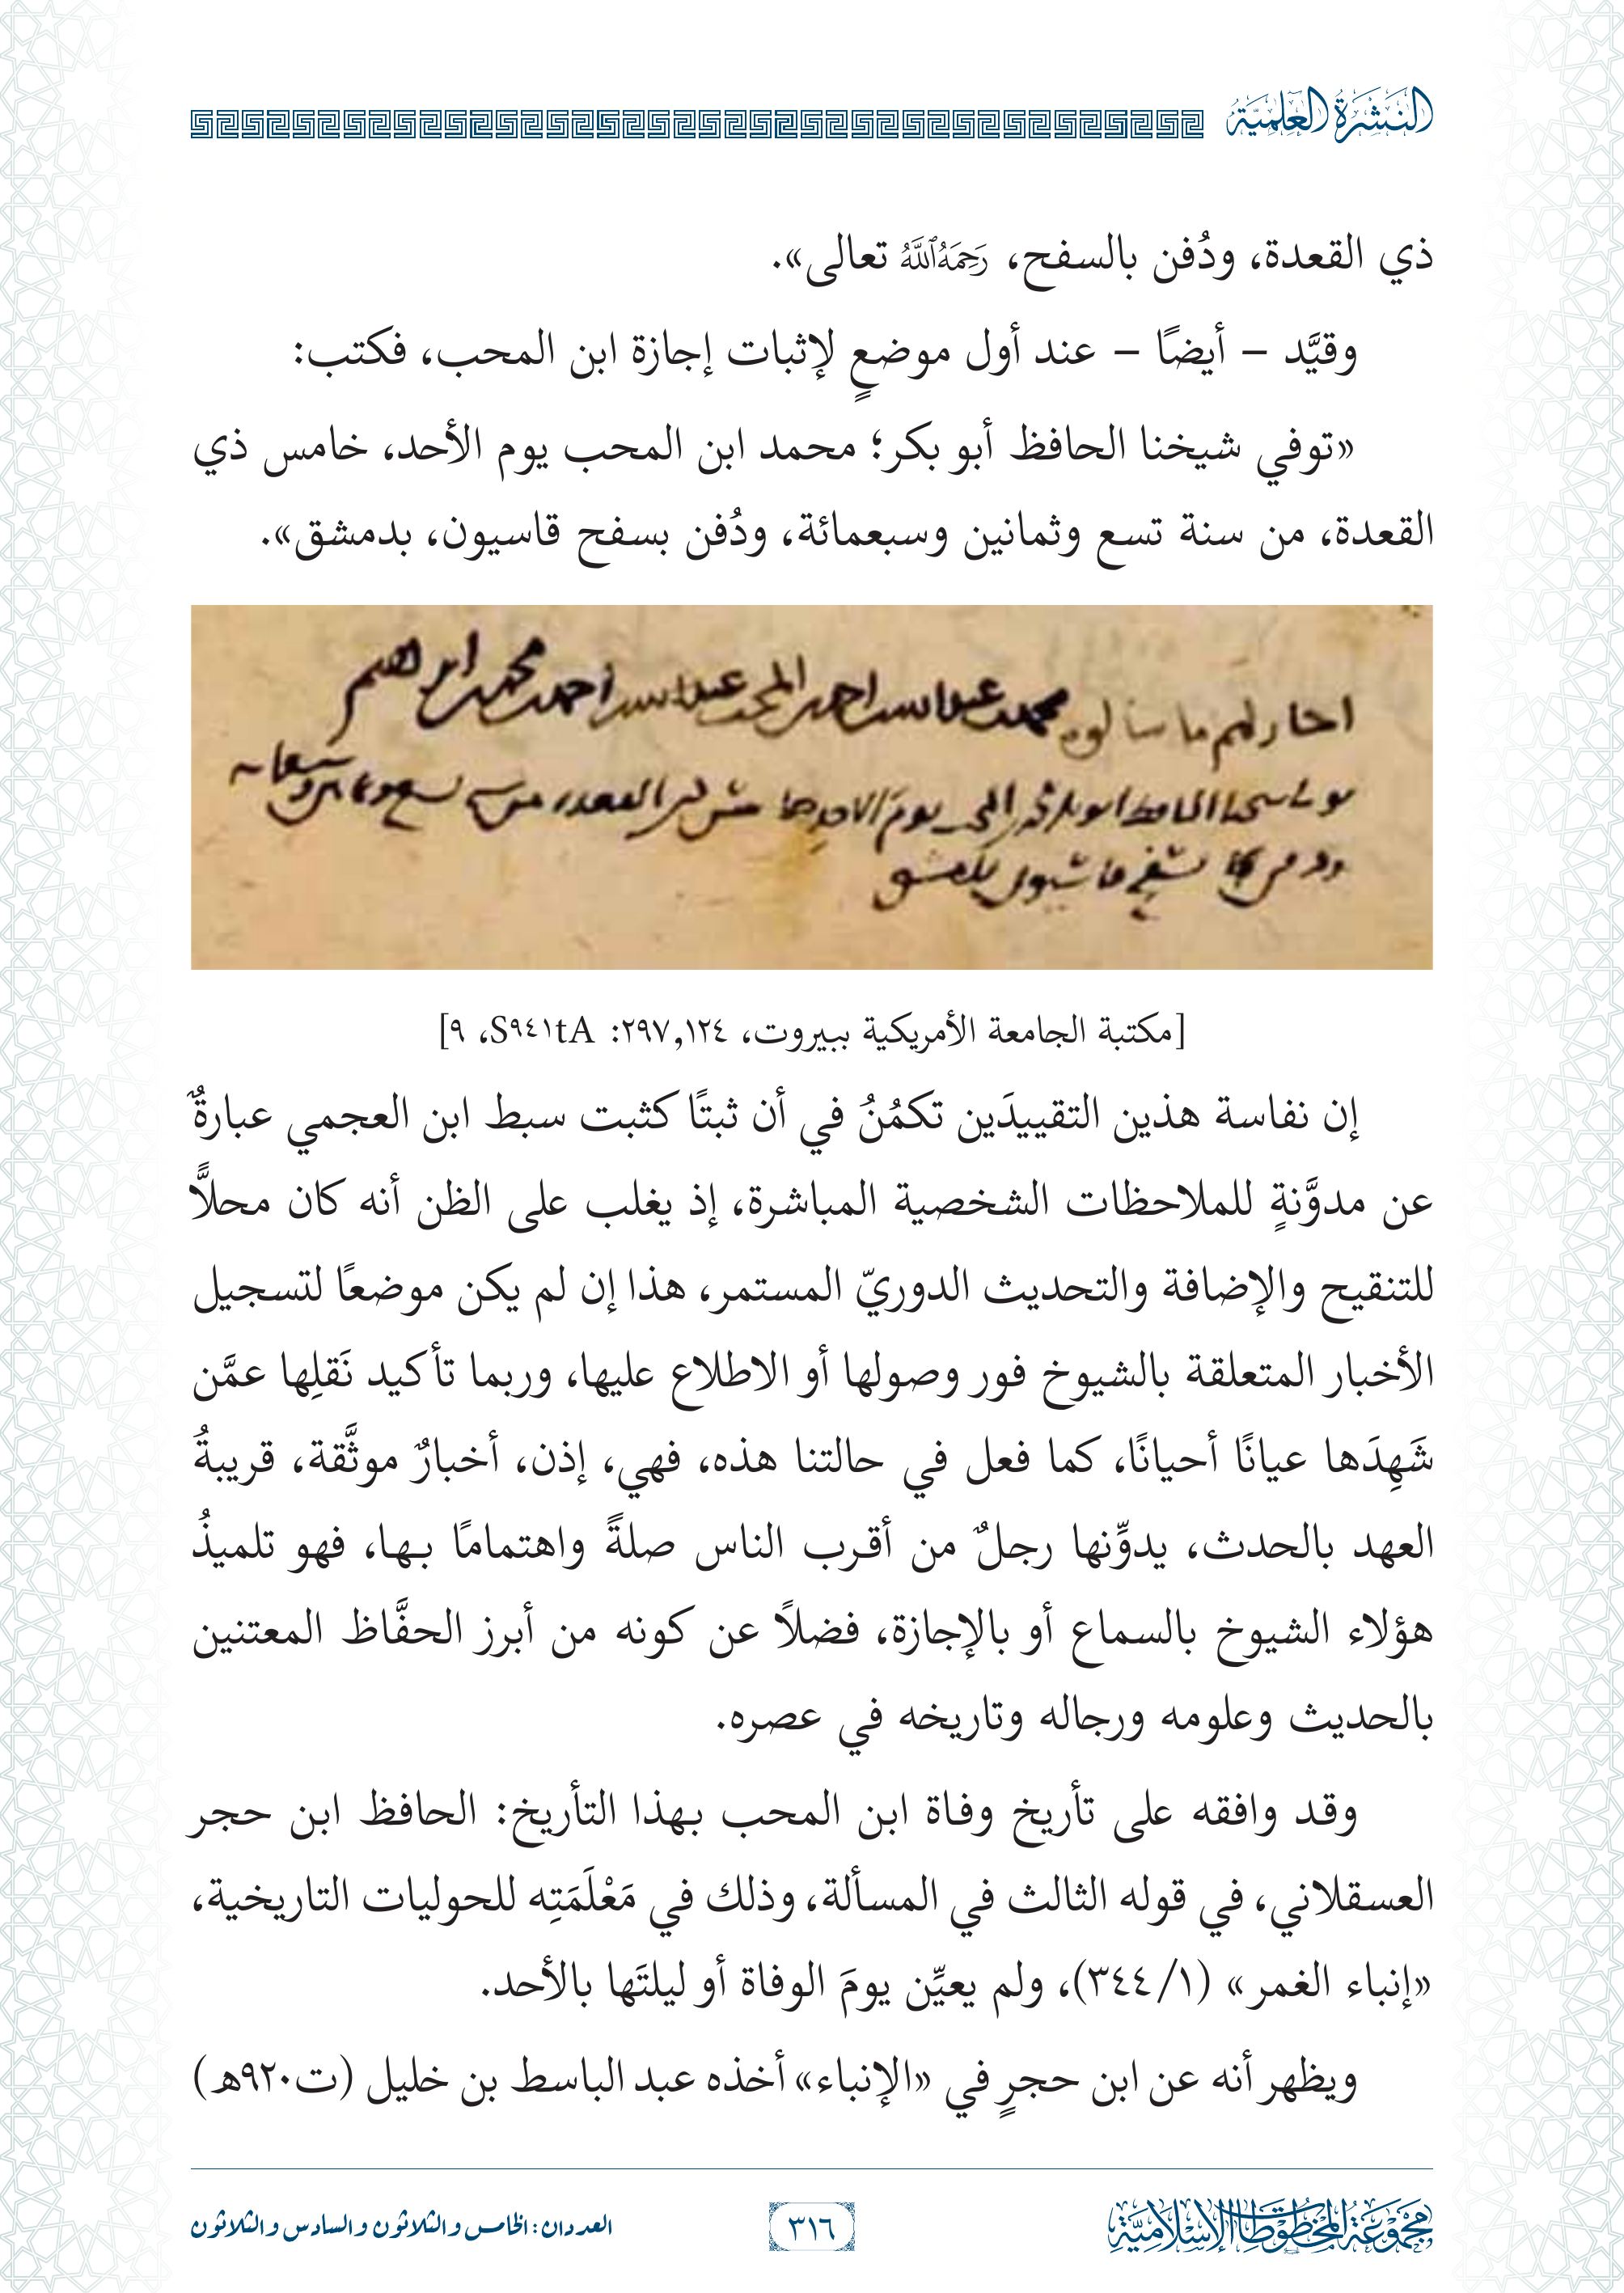 النشرة العلمية
ذي القعدة، ودُفن بالسفح، رَحِمَهُ ٱللَّهُ تعالى».
وقيَّد – أيضًا – عند أول موضعٍ لإثبات إجازة ابن المحب، فكتب:
«توفي شيخنا الحافظ أبو بكر؛ محمد ابن المحب يوم الأحد، خامس ذي
القعدة، من سنة تسع وثمانين وسبعمائة، ودُفن بسفح قاسيون، بدمشق».
محمد عبد الله احمد المحب عبد الله احمد محمد ابراهيم
[مكتبة الجامعة الأمريكية ببيروت، ٢٩٧,١٢٤: S٩٤١tA، ٩]
إن نفاسة هذين التقييدَين تكمُنُ في أن ثبتًا كثبت سبط ابن العجمي عبارةٌ
عن مدوَّنةٍ للملاحظات الشخصية المباشرة، إذ يغلب على الظن أنه كان محلًّا
للتنقيح والإضافة والتحديث الدوريّ المستمر، هذا إن لم يكن موضعًا لتسجيل
الأخبار المتعلقة بالشيوخ فور وصولها أو الاطلاع عليها، وربما تأكيد نَقلِها عمَّن
شَهِدَها عيانًا أحيانًا، كما فعل في حالتنا هذه، فهي، إذن، أخبارٌ موثَّقة، قريبةُ
العهد بالحدث، يدوِّنها رجلٌ من أقرب الناس صلةً واهتمامًا بها، فهو تلميذُ
هؤلاء الشيوخ بالسماع أو بالإجازة، فضلًا عن كونه من أبرز الحفَّاظ المعتنين
بالحديث وعلومه ورجاله وتاريخه في عصره.
وقد وافقه على تأريخ وفاة ابن المحب بهذا التأريخ: الحافظ ابن حجر
العسقلاني، في قوله الثالث في المسألة، وذلك في مَعْلَمَتِه للحوليات التاريخية،
«إنباء الغمر» (١/ ٣٤٤)، ولم يعيِّن يومَ الوفاة أو ليلتَها بالأحد.
ويظهر أنه عن ابن حجرٍ في «الإنباء» أخذه عبد الباسط بن خليل (ت٩٢٠هـ)
مجموعة المخطوطات الإسلامية
٣١٦
العددان: الخامس والثلاثون والسادس والثلاثون